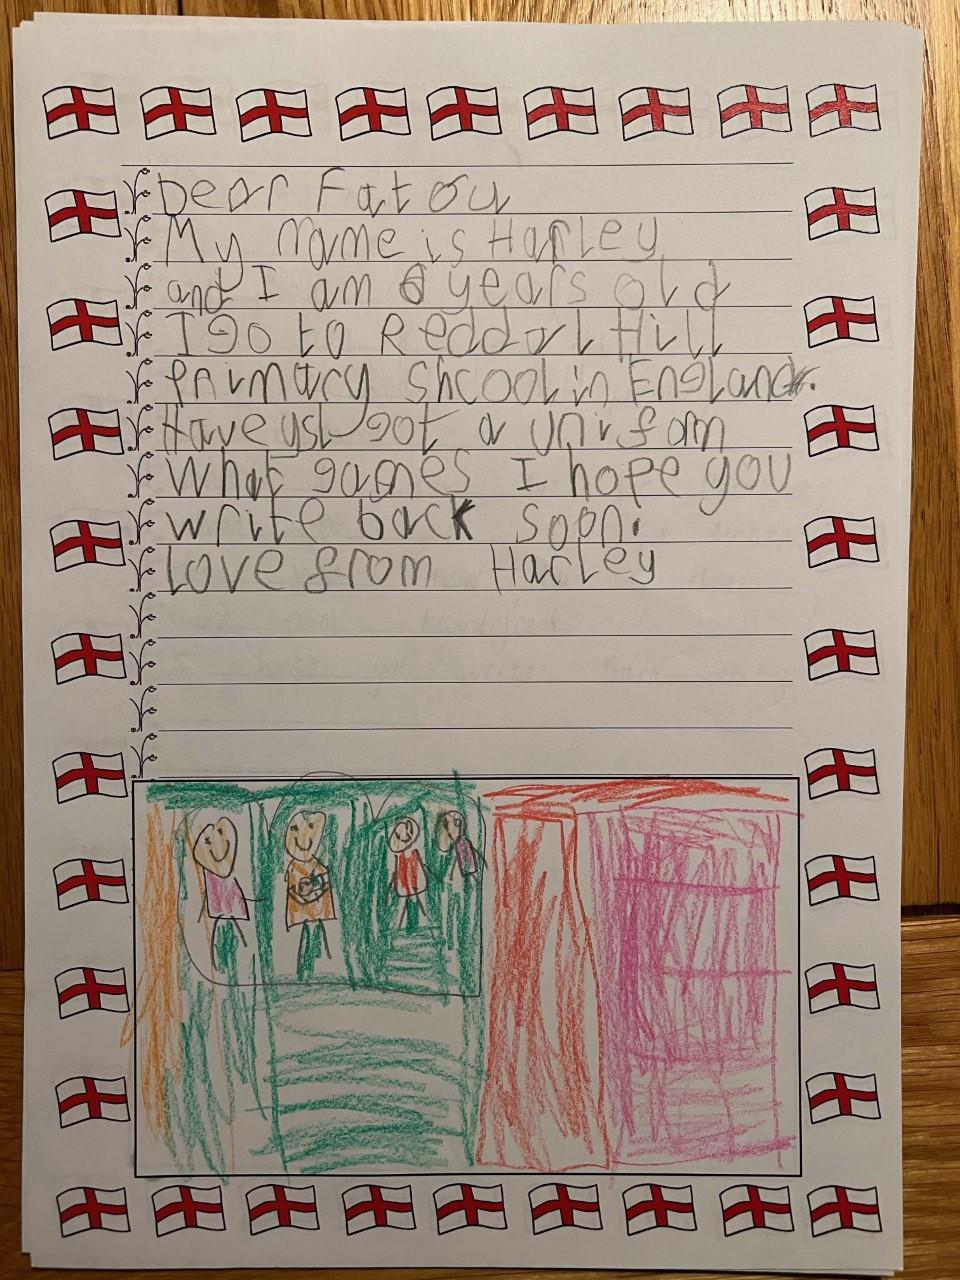 Dear Fatou
My name is Harley
and I am 6 years old
I go to Reddal Hill
Primary Shcool in England.
Have got a unifom
What games I hope you
write back soon.
Love from Harley